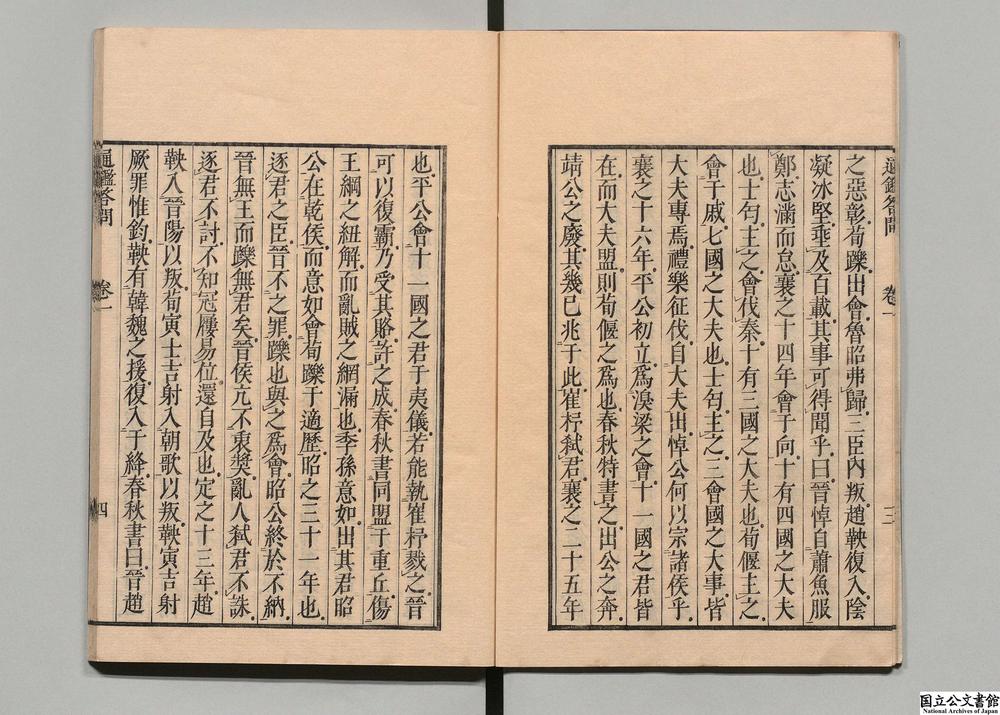 通鑑答問 卷一 三
之惡彰荀躒出會魯昭弗歸三臣內叛趙鞅復入陰
凝冰堅垂及百載其事可得聞乎曰晉悼自蕭魚服
鄭志滿而怠襄之十四年會于向十有四國之大夫
也士匄主之會伐秦十有三國之大夫也荀偃主之
會于戚七國之大夫也士匄主之三會國之大事皆
大夫專焉禮樂征伐自大夫出悼公何以宗諸侯乎
襄之十六年平公初立爲溴梁之會十一國之君皆
在而大夫盟則荀偃之爲也春秋特書之出公之奔
靖公之廢其幾已兆于此崔杼弑君襄之二十五年
也平公會十一國之君于夷儀若能執崔杼戮之晉
可以復霸乃受其賂許之成春秋書同盟于重丘傷
王綱之紐解而亂賊之網漏也季孫意如出其君昭
公在乾侯而意如會荀躒于適歷昭之三十一年也
逐君之臣晉不之罪躒也與之爲會昭公終於不納
晉無王而躒無君矣晉侯亢不衷奬亂人弑君不誅
逐君不討不知冠屨易位還自及也定之十三年趙
鞅入晉陽以叛荀寅士吉射入朝歌以叛鞅寅吉射
厥罪惟鈞鞅有韓魏之援復入于絳春秋書曰晉趙
通鑑答問 卷一 四
国立公文書館
National Archives of Japan